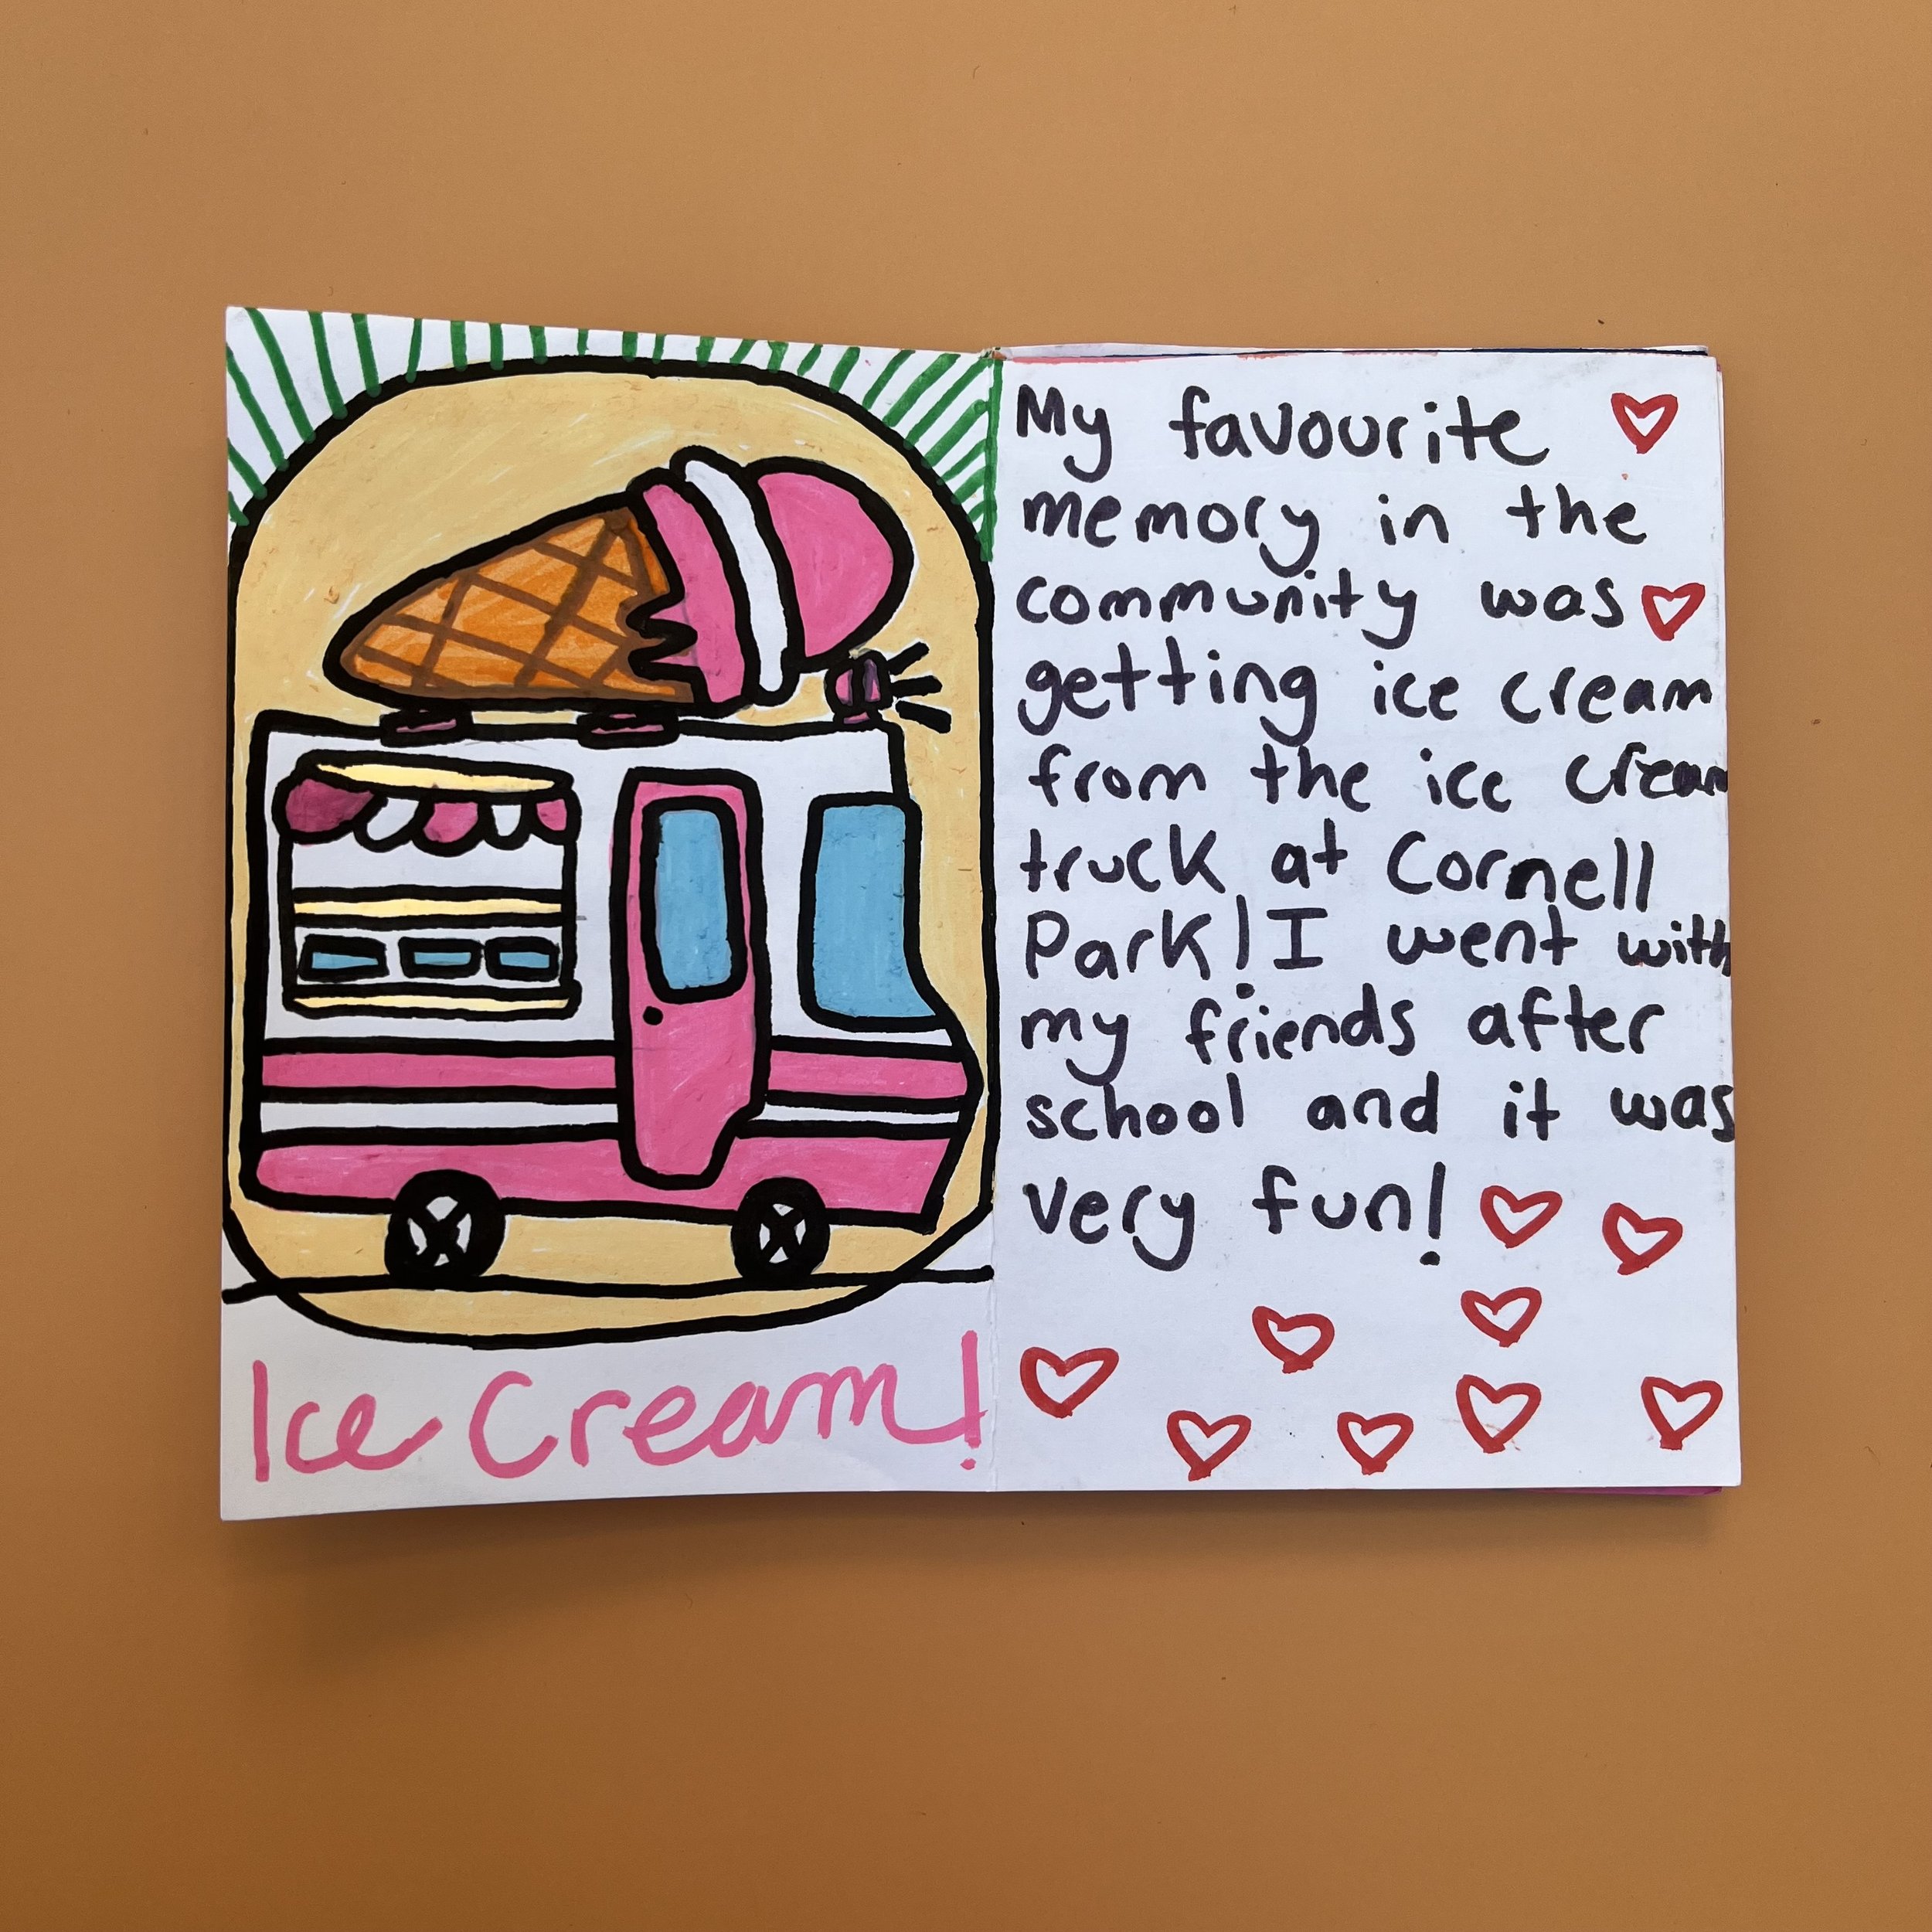 Ice Cream!
My favourite
memory in the
community was
getting ice cream
from the ice cream
truck at Cornell
Park! I went with
my friends after
school and it was
very fun!